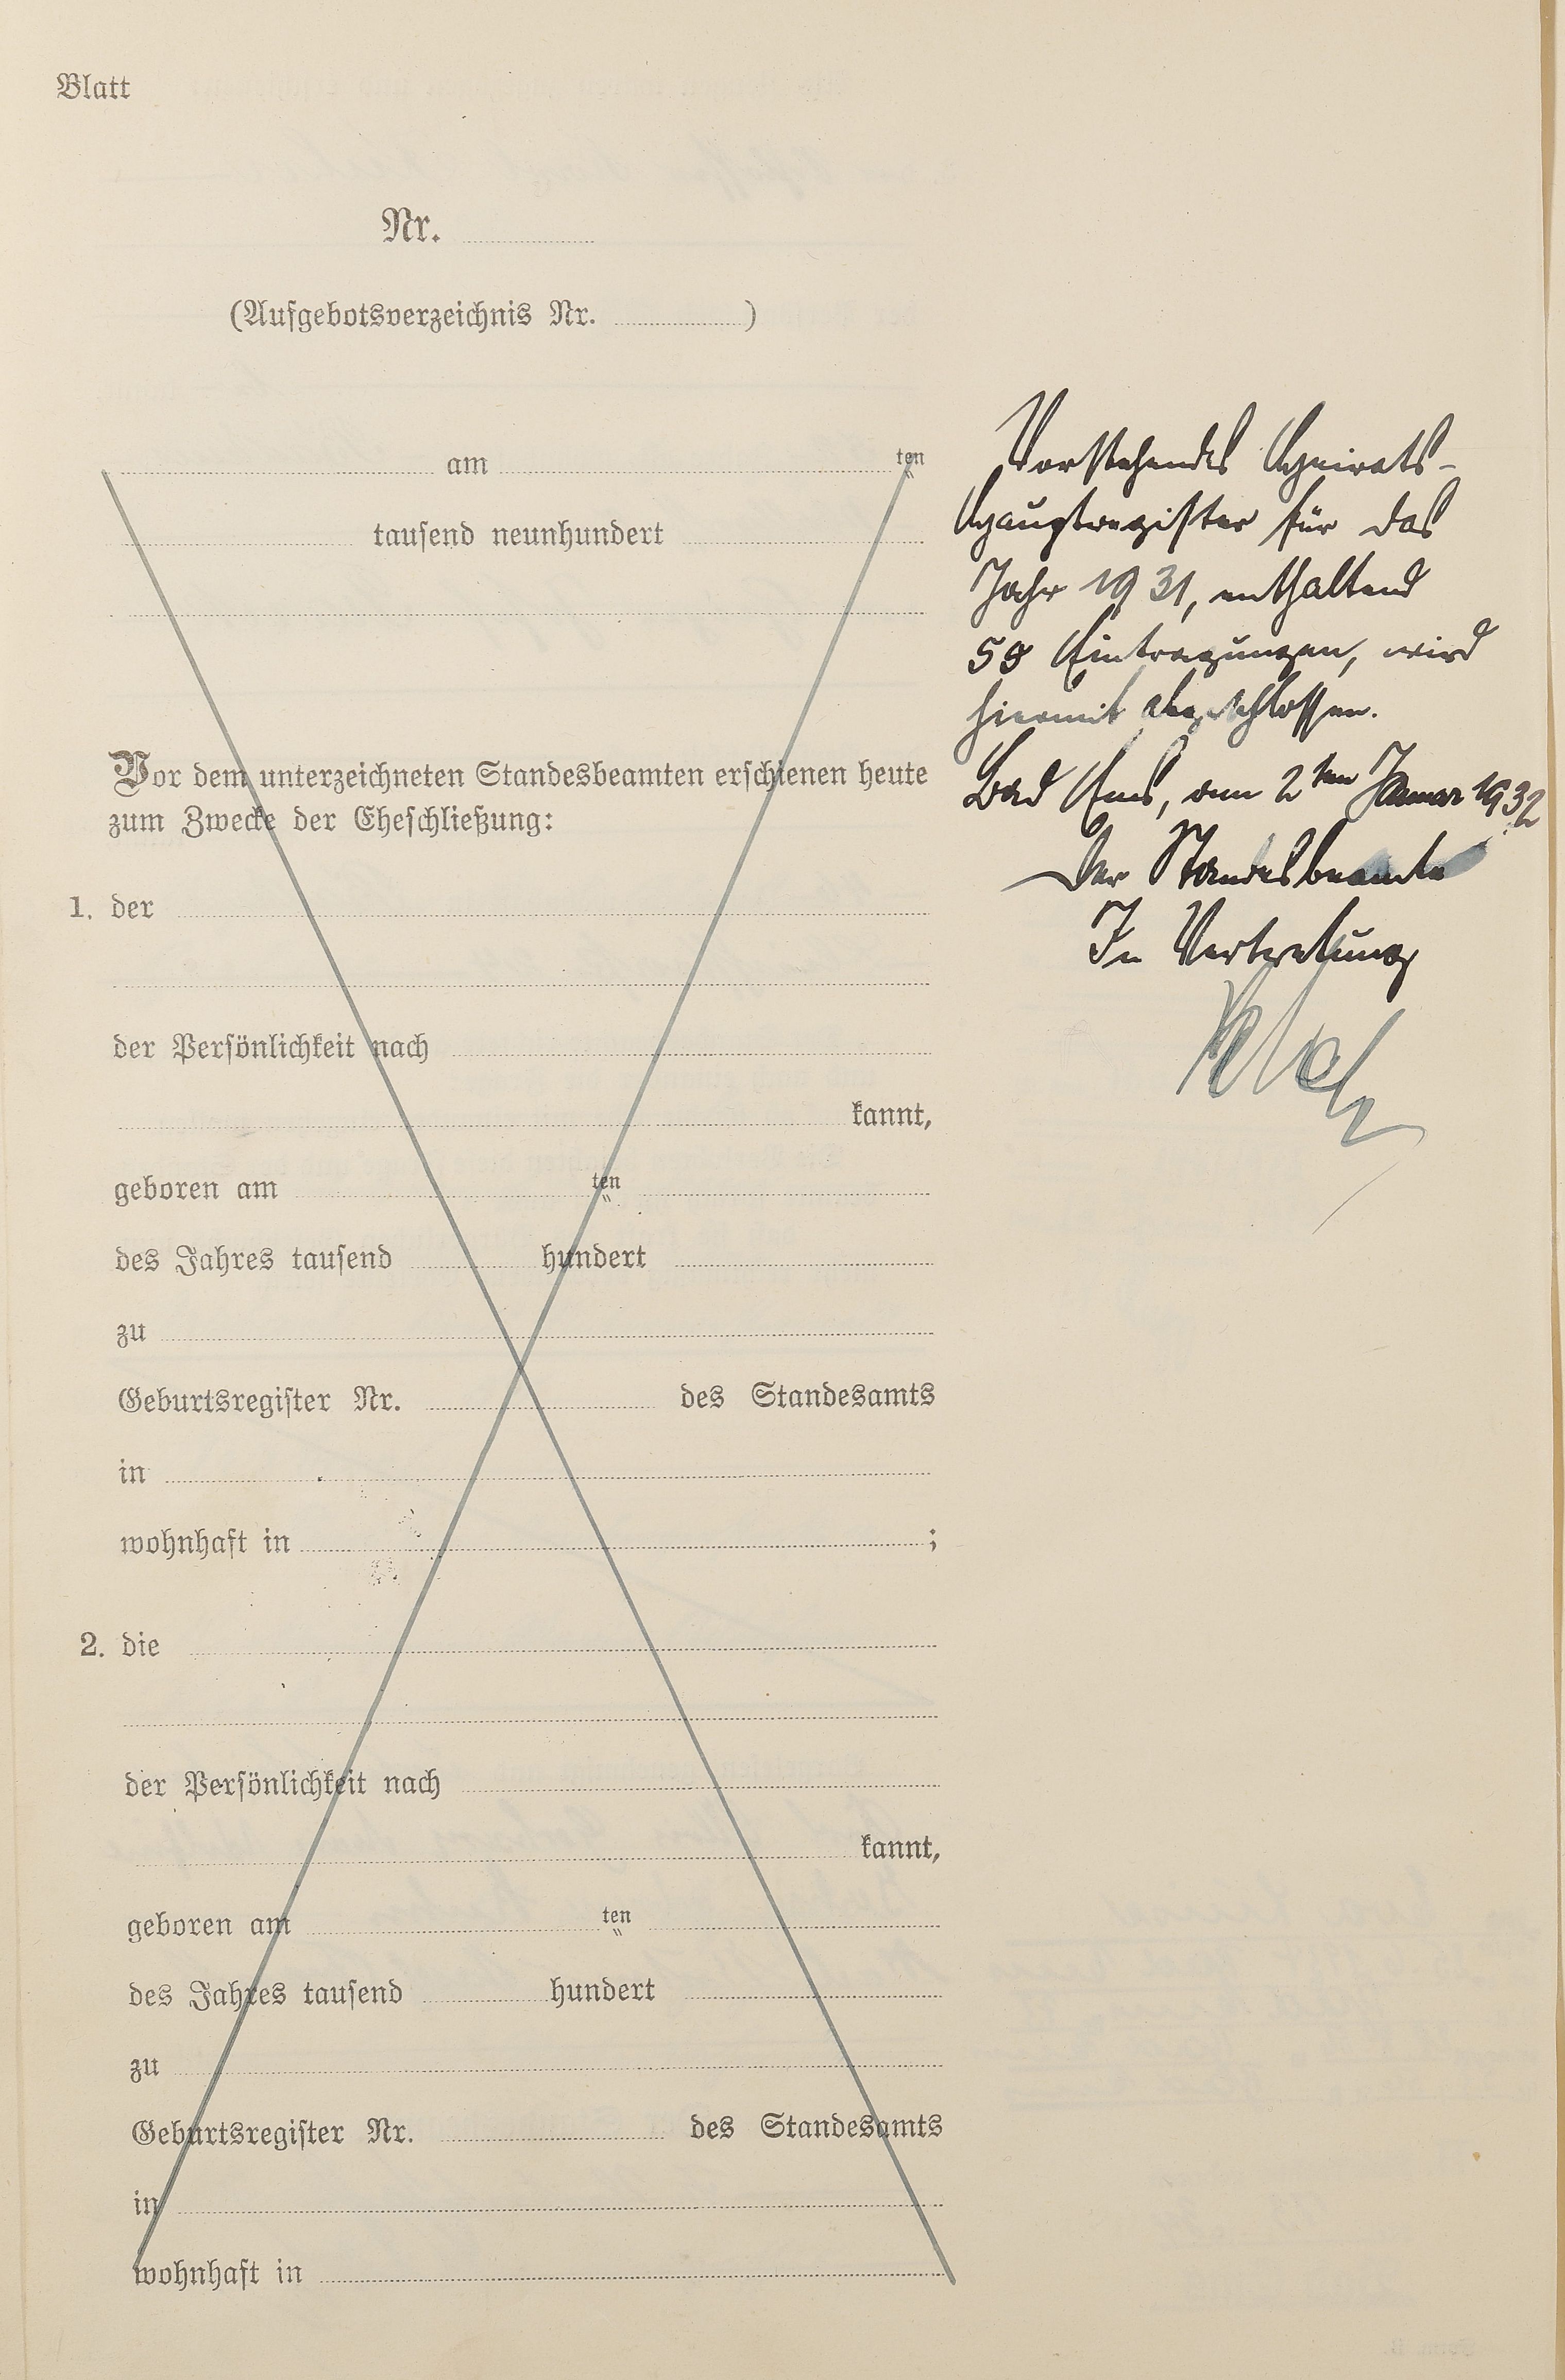 Blatt
Nr.
(Aufgebotsverzeichnis Nr. )
am ten
tausend neunhundert
Vor dem unterzeichneten Standesbeamten erschienen heute
zum Zwecke der Eheschließung:
1. der
der Persönlichkeit nach
kannt,
geboren am ten
des Jahres tausend hundert
zu
Geburtsregister Nr. des Standesamts
in
wohnhaft in ;
2. die
der Persönlichkeit nach
kannt,
geboren am ten
des Jahres tausend hundert
zu
Geburtsregister Nr. des Standesamts
in
wohnhaft in
Vorstehendes Heirats-
Hauptregister für das
Jahr 1931, enthaltend
Eintragungen, wird
hiermit abgeschlossen.
Bad Ems, am 2ten Januar 1932
Der Standesbeamte
In Vertretung